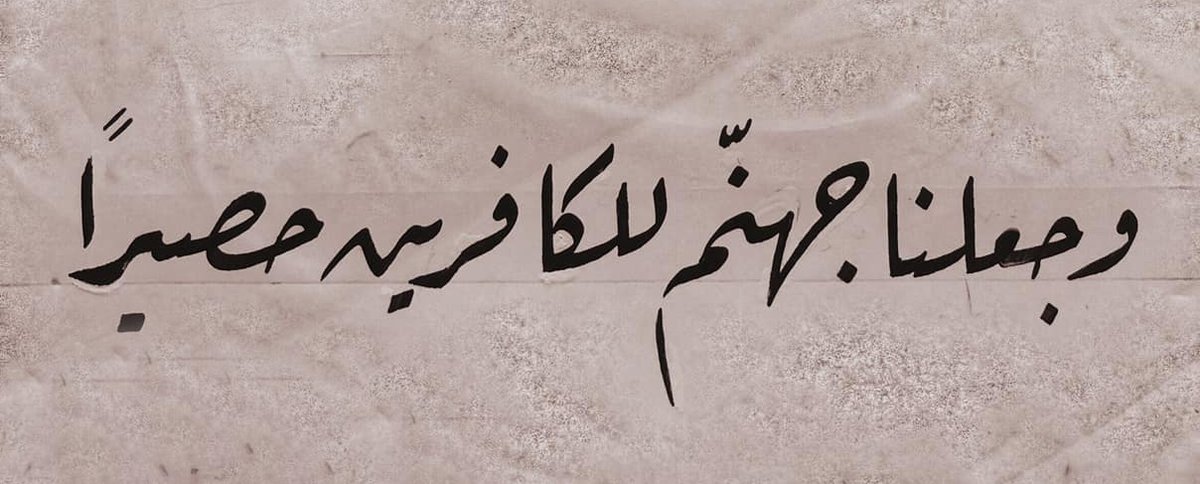 وجعلنا جهنّم للكافرين حصيراً